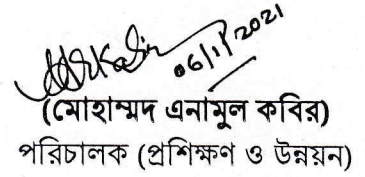 06/1/2021
(মোহাম্মদ এনামুল কবির)
পরিচালক (প্রশিক্ষণ ও উন্নয়ন)